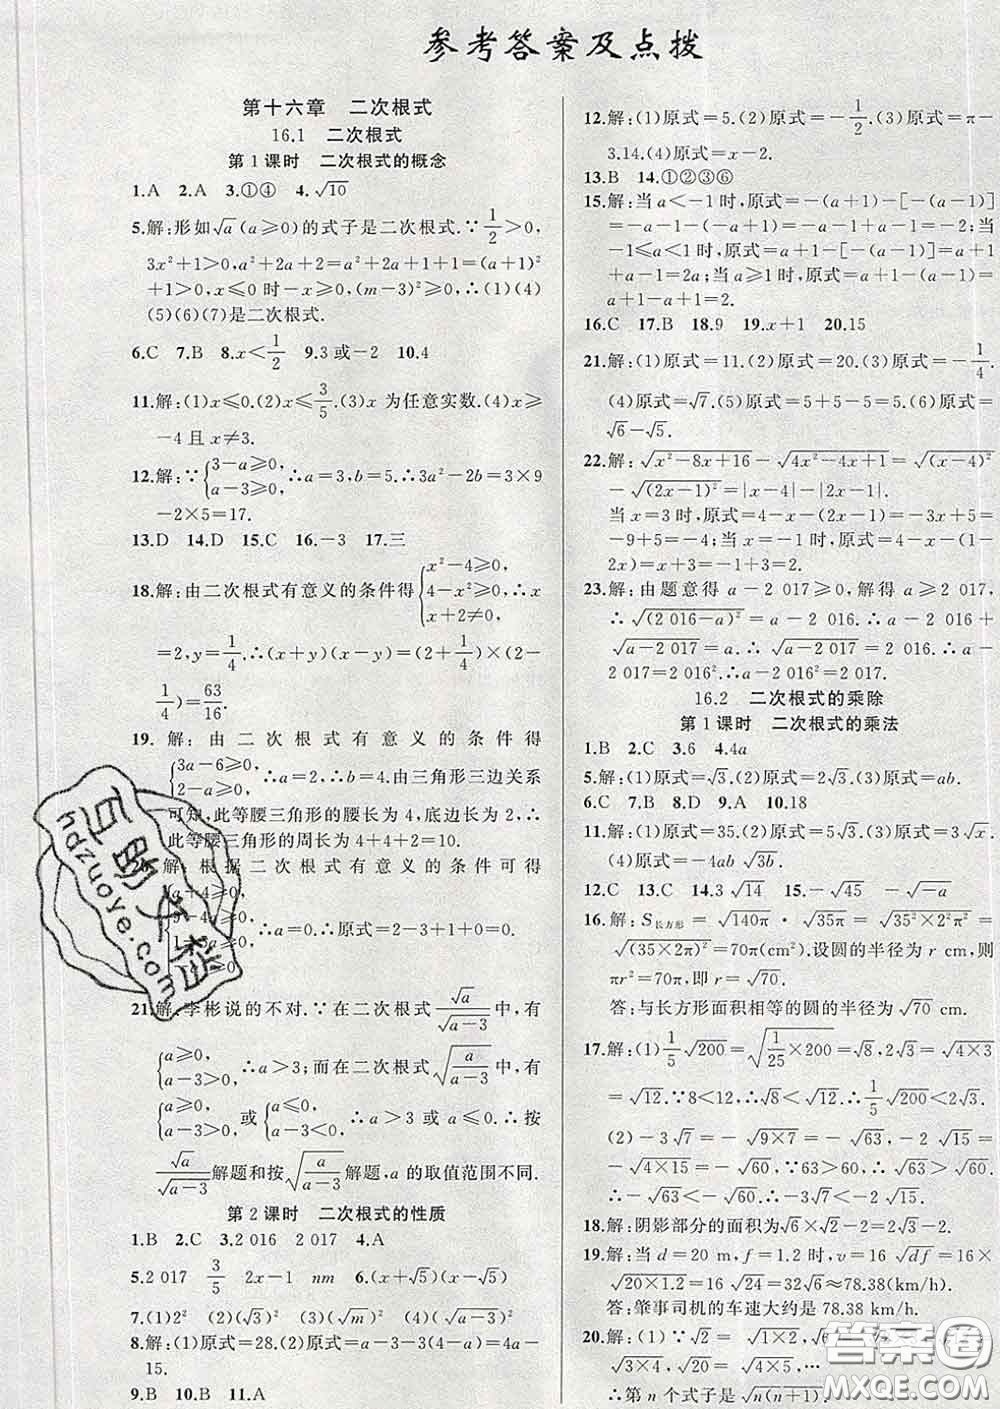 参考答案及点拨
第十六章 二次根式
16.1 二次根式
第1课时 二次根式的概念
1.A 2.A 3.①④ 4.√10
5.解:形如√a(a≥0)的式子是二次根式.∵1/2>0,
3x²+1>0,a²+2a+2=a²+2a+1+1=(a+1)²
+1>0,x≤0时-x≥0,(m-3)²≥0,∴(1)(4)
(5)(6)(7)是二次根式.
6.C 7.B 8.x<1/2 9.3或-2 10.4
11.解:(1)x≤0.(2)x≤3/5.(3)x为任意实数.(4)x≥
-4且x≠3.
12.解:∵{3-a≥0, a-3≥0 ∴a=3,b=5.∴3a²-2b=3×9
-2×5=17.
13.D 14.D 15.C 16.-3 17.三
18.解:由二次根式有意义的条件得{x²-4≥0, 4-x²≥0, x+2≠0, ∴x
=2,y=1/4.∴(x+y)(x-y)=(2+1/4)×(2-
1/4)=63/16.
19.解:由二次根式有意义的条件得
{3a-6≥0, 2-a≥0, ∴a=2,∴b=4.由三角形三边关系
可知,此等腰三角形的腰长为4,底边长为2,∴
此等腰三角形的周长为4+4+2=10.
解:根据二次根式有意义的条件可得
∴a=0.∴原式=2-3+1+0=0.
21.解:李彬说的不对.∵在二次根式√a/√(a-3)中,有
{a≥0, a-3>0; 而在二次根式√(a/(a-3))中,有
{a≥0, a-3>0 或{a≤0, a-3<0, ∴a>3或a≤0.∴按
√a/√(a-3)解题和按√(a/(a-3))解题,a的取值范围不同.
第2课时 二次根式的性质
1.B 2.C 3.2 016 2 017 4.A
5.2 017 3/5 2x-1 nm 6.(x+√5)(x-√5)
7.(1)2² (2)(√3)² (3)(√m)² (4)(√2)²
8.解:(1)原式=28.(2)原式=a-3-3(4-a)=4a-
15.
9.B 10.B 11.A
12.解:(1)原式=5.(2)原式=-1/2.(3)原式=π-
3.14.(4)原式=x-2.
13.B 14.①②③⑥
15.解:当a<-1时,原式=-(a+1)-[-(a-1)]
=-a-1-(-a+1)=-a-1+a-1=-2;当
-1≤a<1时,原式=a+1-[-(a-1)]=a+1
+a-1=2a;当a≥1时,原式=a+1-(a-1)=
a+1-a+1=2.
16.C 17.B 18.9 19.x+1 20.15
21.解:(1)原式=11.(2)原式=20.(3)原式=-1/4.
(4)原式=√7.(5)原式=5+5-5=5.(6)原式=
√6-√5.
22.解:√(x²-8x+16)-√(4x²-4x+1)=√((x-4)²)
-√((2x-1)²)=|x-4|-|2x-1|.
当x=3时,原式=4-x-(2x-1)=-3x+5=
-9+5=-4;当x=-1时,原式=4-x-(1-
2x)=x+3=-1+3=2.
23.解:由题意得a-2 017≥0,解得a≥2 017,
∴√((2 016-a)²)=a-2 016.∴a-2 016+
√(a-2 017)=a.∴√(a-2 017)=2 016.∴a-
2 017=2 016².∴a-2 016²=2 017.
16.2 二次根式的乘除
第1课时 二次根式的乘法
1.B 2.C 3.6 4.4a
5.解:(1)原式=√3.(2)原式=2√3.(3)原式=ab.
6.C 7.B 8.D 9.A 10.18
11.解:(1)原式=35.(2)原式=5√3.(3)原式=3√x.
(4)原式=-4ab√(3b).
12.C 13.C 14.3√14 15.-√45 -√(-a)
16.解:S长方形=√(140π)·√(35π)=√(35²×2²π²)
=√((35×2π)²)=70π(cm²).设圆的半径为r cm,则
πr²=70π,即r=√70.
答:与长方形面积相等的圆的半径为√70 cm.
17.解:(1)1/5√200=√(1/25×200)=√8,2√3=√(4×3)
=√12.∵8<12,∴√8<√12.∴1/5√200<2√3.
(2)-3√7=-√(9×7)=-√63,-2√15=
-√(4×15)=-√60,∵63>60,∴√63>√60.
∴-√63<-√60.∴-3√7<-2√15.
18.解:阴影部分的面积为√6×√2-2=2√3-2.
19.解:当d=20 m,f=1.2时,v=16√(df)=16×
√(20×1.2)=16√24=32√6≈78.38(km/h).
答:肇事司机的车速大约是78.38 km/h.
20.解:(1)∵√2=√(1×2),√6
√(4×5),…
∴第n个式子是√(n(n+1)).
百助文档
hdzuoye.com
答案圈
MXQE.COM